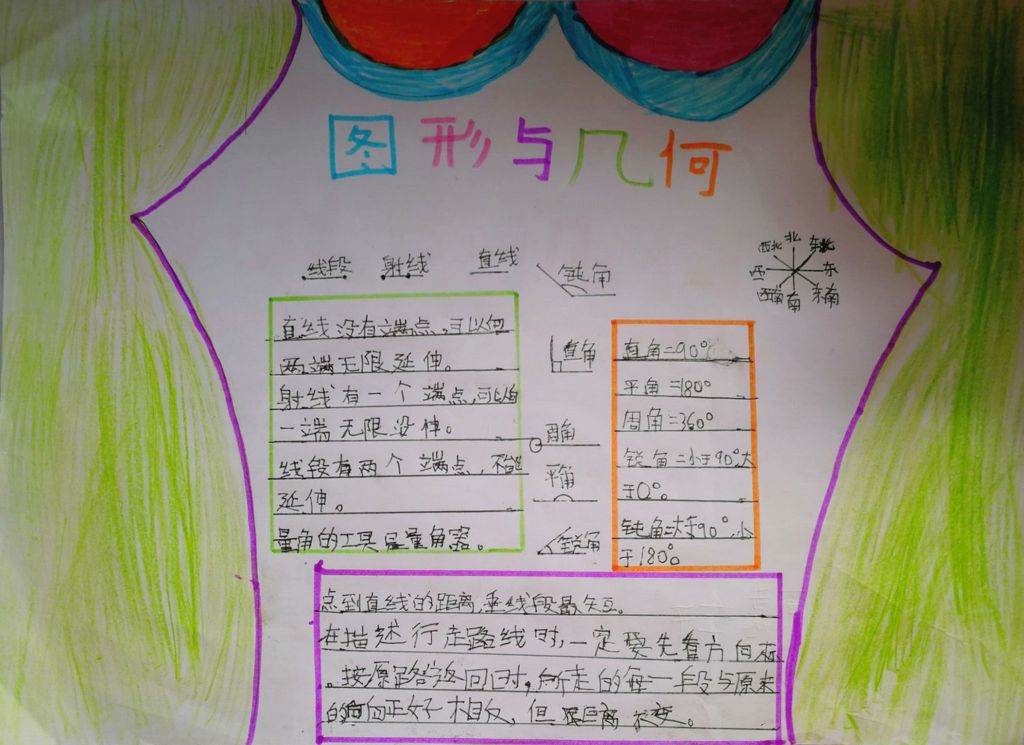 图形与几何
线段 射线 直线
钝角
西北 北 东北
西 东
西南 南 东南
直线没有端点,可以向
两端无限延伸。
射线有一个端点,可以向
一端无限延伸。
线段有两个端点,不能
延伸。
量角的工具是量角器。
直角
周角
平角
锐角
直角=90°
平角=180°
周角=360°
锐角=小于90°大
于0°。
钝角=大于90°,小
于180°。
点到直线的距离,垂线段最短。
在描述行走路线时,一定要先看方向标
。按原路返回时,所走的每一段与原来
的方向正好相反,但距离不变。